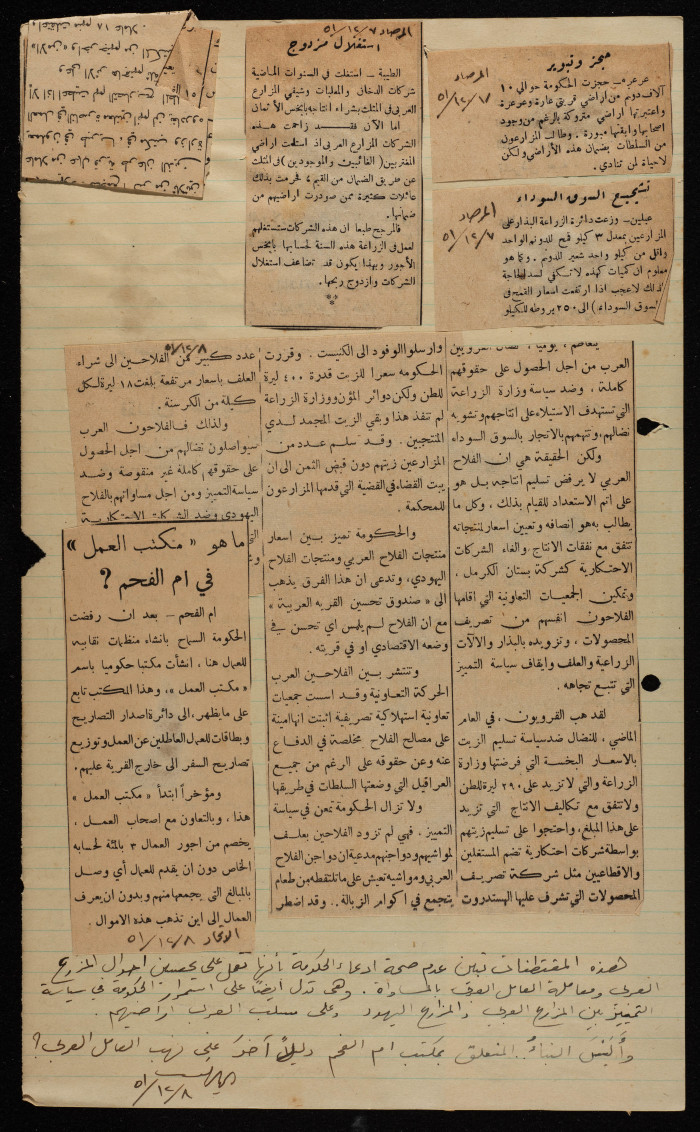 المرصاد
٥١/١٢/٧
حجز وتبوير
عرعره — حجزت الحكومة حوالي ١٠
آلاف دونم من اراضي قريتي عارة وعرعرة
واعتبرتها أراضي متروكة بالرغم من وجود
اصحابها وابقتها مبورة . وطالب المزارعون
من السلطات بضمان هذه الأراضي ولكن
لاحياة لمن تنادي .
المرصاد
٥١/١٢/٧
تشجيع السوق السوداء
عبلين — وزعت دائرة الزراعة البذار على
المزارعين بمعدل ٣ كيلو قمح للدونم الواحد
واقل من كيلو واحد شعير للدونم . وكما هو
معلوم ان كميات كهذه لا تكفي لسد الحاجة
لذلك لاعجب اذا ارتفعت اسعار القمح في
السوق السوداء ) الى ٢٥٠ بروطه للكيلو
المرصاد ٥١/١٢/٧
استغلال مزدوج
الطيبة — استغلت في السنوات الماضية
شركات الدخان والمعلبات وشيفي المزارع
العربي في المثلث بشراء انتاجه بابخس الأثمان
اما الآن فقد زاحمت هذه
الشركات المزارع العربي اذ استلمت اراضي
المغتربين ( الغائبين والموجودين ) في المثلث
عن طريق الضمان من القيم، فحرمت بذلك
عائلات كثيرة ممن صودرت اراضيهم من
ضمانها .
فالمرجح طبعا ان هذه الشركات ستستغلهم
لعمل في الزراعة هذه السنة لحسابها بابخس
الأجور وبهذا يكون قد تضاعف استغلال
الشركات وازدوج ربحها .
العرب من اجل الحصول على حقوقهم
كاملة ، وضد سياسة وزارة الزراعة
التي تستهدف الاستيلاء على انتاجهم وتشويه
نضالهم، وتتهمهم بالاتجار بالسوق السوداء
ولكن الحقيقة هي ان الفلاح
العربي لا يرفض تسليم انتاجه بل هو
على اتم الاستعداد للقيام بذلك ، وكل ما
يطالب به هو انصافه وتعيين اسعار لمنتجاته
تتفق مع نفقات الانتاج ، والغاء الشركات
الاحتكارية كشركة بستان الكرمل ،
وتمكين الجمعيات التعاونية التي اقامها
الفلاحون انفسهم من تصريف
المحصولات ، وتزويده بالبذار والآلات
الزراعية والعلف وايقاف سياسة التمييز
التي تتبع تجاهه .
لقد هب القرويون ، في العام
الماضي ، للنضال ضد سياسة تسليم الزيت
بالاسعار البخسة التي فرضتها وزارة
الزراعة والتي لا تزيد على ٢٩٠ ليرة للطن
ولا تتفق مع تكاليف الانتاج التي تزيد
على هذا المبلغ ، واحتجوا على تسليم زيتهم
بواسطة شركات احتكارية تضم المستغلين
والاقطاعيين مثل شركة تصريف
المحصولات التي تشرف عليها الهستدروت
وارسلوا الوفود الى الكنيست . وقررت
الحكومه سعرا للزيت قدره ٤٠٠ ليرة
للطن ولكن دوائر المؤن ووزارة الزراعة
لم تنفذ هذا وبقي الزيت المجمد لدى
المنتجين . وقد سلم عدد من
المزارعين زيتهم دون قبض الثمن الى ان
يبت القضاء في القضية التي قدمها المزارعون
للمحكمة .
والحكومة تميز بين اسعار
منتجات الفلاح العربي ومنتجات الفلاح
اليهودي ، وتدعي ان هذا الفرق يذهب
الى « صندوق تحسين القريه العربية »
مع ان الفلاح لم يلمس اي تحسن في
وضعه الاقتصادي او في قريته .
وتنتشر بين الفلاحين العرب
الحركة التعاونية وقد اسست جمعيات
تعاونية استهلاكية تصريفية اثبتت انها امينة
على مصالح الفلاح مخلصة في الدفاع
عنه وعن حقوقه على الرغم من جميع
العراقيل التي وضعتها السلطات في طريقها
ولا تزال الحكومة تمعن في سياسة
التمييز . فهي لم تزود الفلاحين بعلف
لمواشيهم ودواجنهم مدعية ان دواجن الفلاح
العربي ومواشيه تعيش على ما تلتقطه من طعام
يتجمع في اكوام الزبالة .. وقد اضطر
٥١/١٢/٨
عدد كبير من الفلاحين الى شراء
العلف باسعار مرتفعة بلغت ١٨ ليرة لكل
كيلة من الكرسنة .
ولذلك فالفلاحون العرب
سيواصلون نضالهم من اجل الحصول
على حقوقهم كاملة غير منقوصة وضد
سياسة التمييز ومن اجل مساواتهم بالفلاح
اليهودي وضد الشركات الاحتكارية
ما هو « مكتب العمل »
في ام الفحم ؟
ام الفحم — بعد ان رفضت
الحكومة السماح بانشاء منظمات نقابيه
للعمال هنا ، انشأت مكتبا حكوميا باسم
« مكتب العمل » ، وهذا المكتب تابع
على ما يظهر ، الى دائرة اصدار التصاريح
وبطاقات للعمال العاطلين عن العمل وتوزيع
تصاريح السفر الى خارج القرية عليهم .
ومؤخراً ابتدأ « مكتب العمل »
هذا ، وبالتعاون مع اصحاب العمل ،
يخصم من اجور العمال ٣ بالمئة لحسابه
الخاص دون ان يقدم للعمال أي وصل
بالمبالغ التي يجمعها منهم وبدون ان يعرف
العمال الى اين تذهب هذه الاموال .
الاتحاد ٥١/١٢/٨
هذه المقتطفات تبين عدم صحة ادعاء الحكومة بأنها تعمل على تحسين احوال المزارع
العربي ومعاملة العامل العربي بالمساواة . وهي تدل أيضاً على استمرار الحكومة في سياسة
التمييز بين المزارع العربي والمزارع اليهودي وعلى سلب العرب اراضيهم .
وأليس النبأ المتعلق بمكتب ام الفحم دليلاً آخر على نهب العامل العربي ؟
٥١/١٢/٨